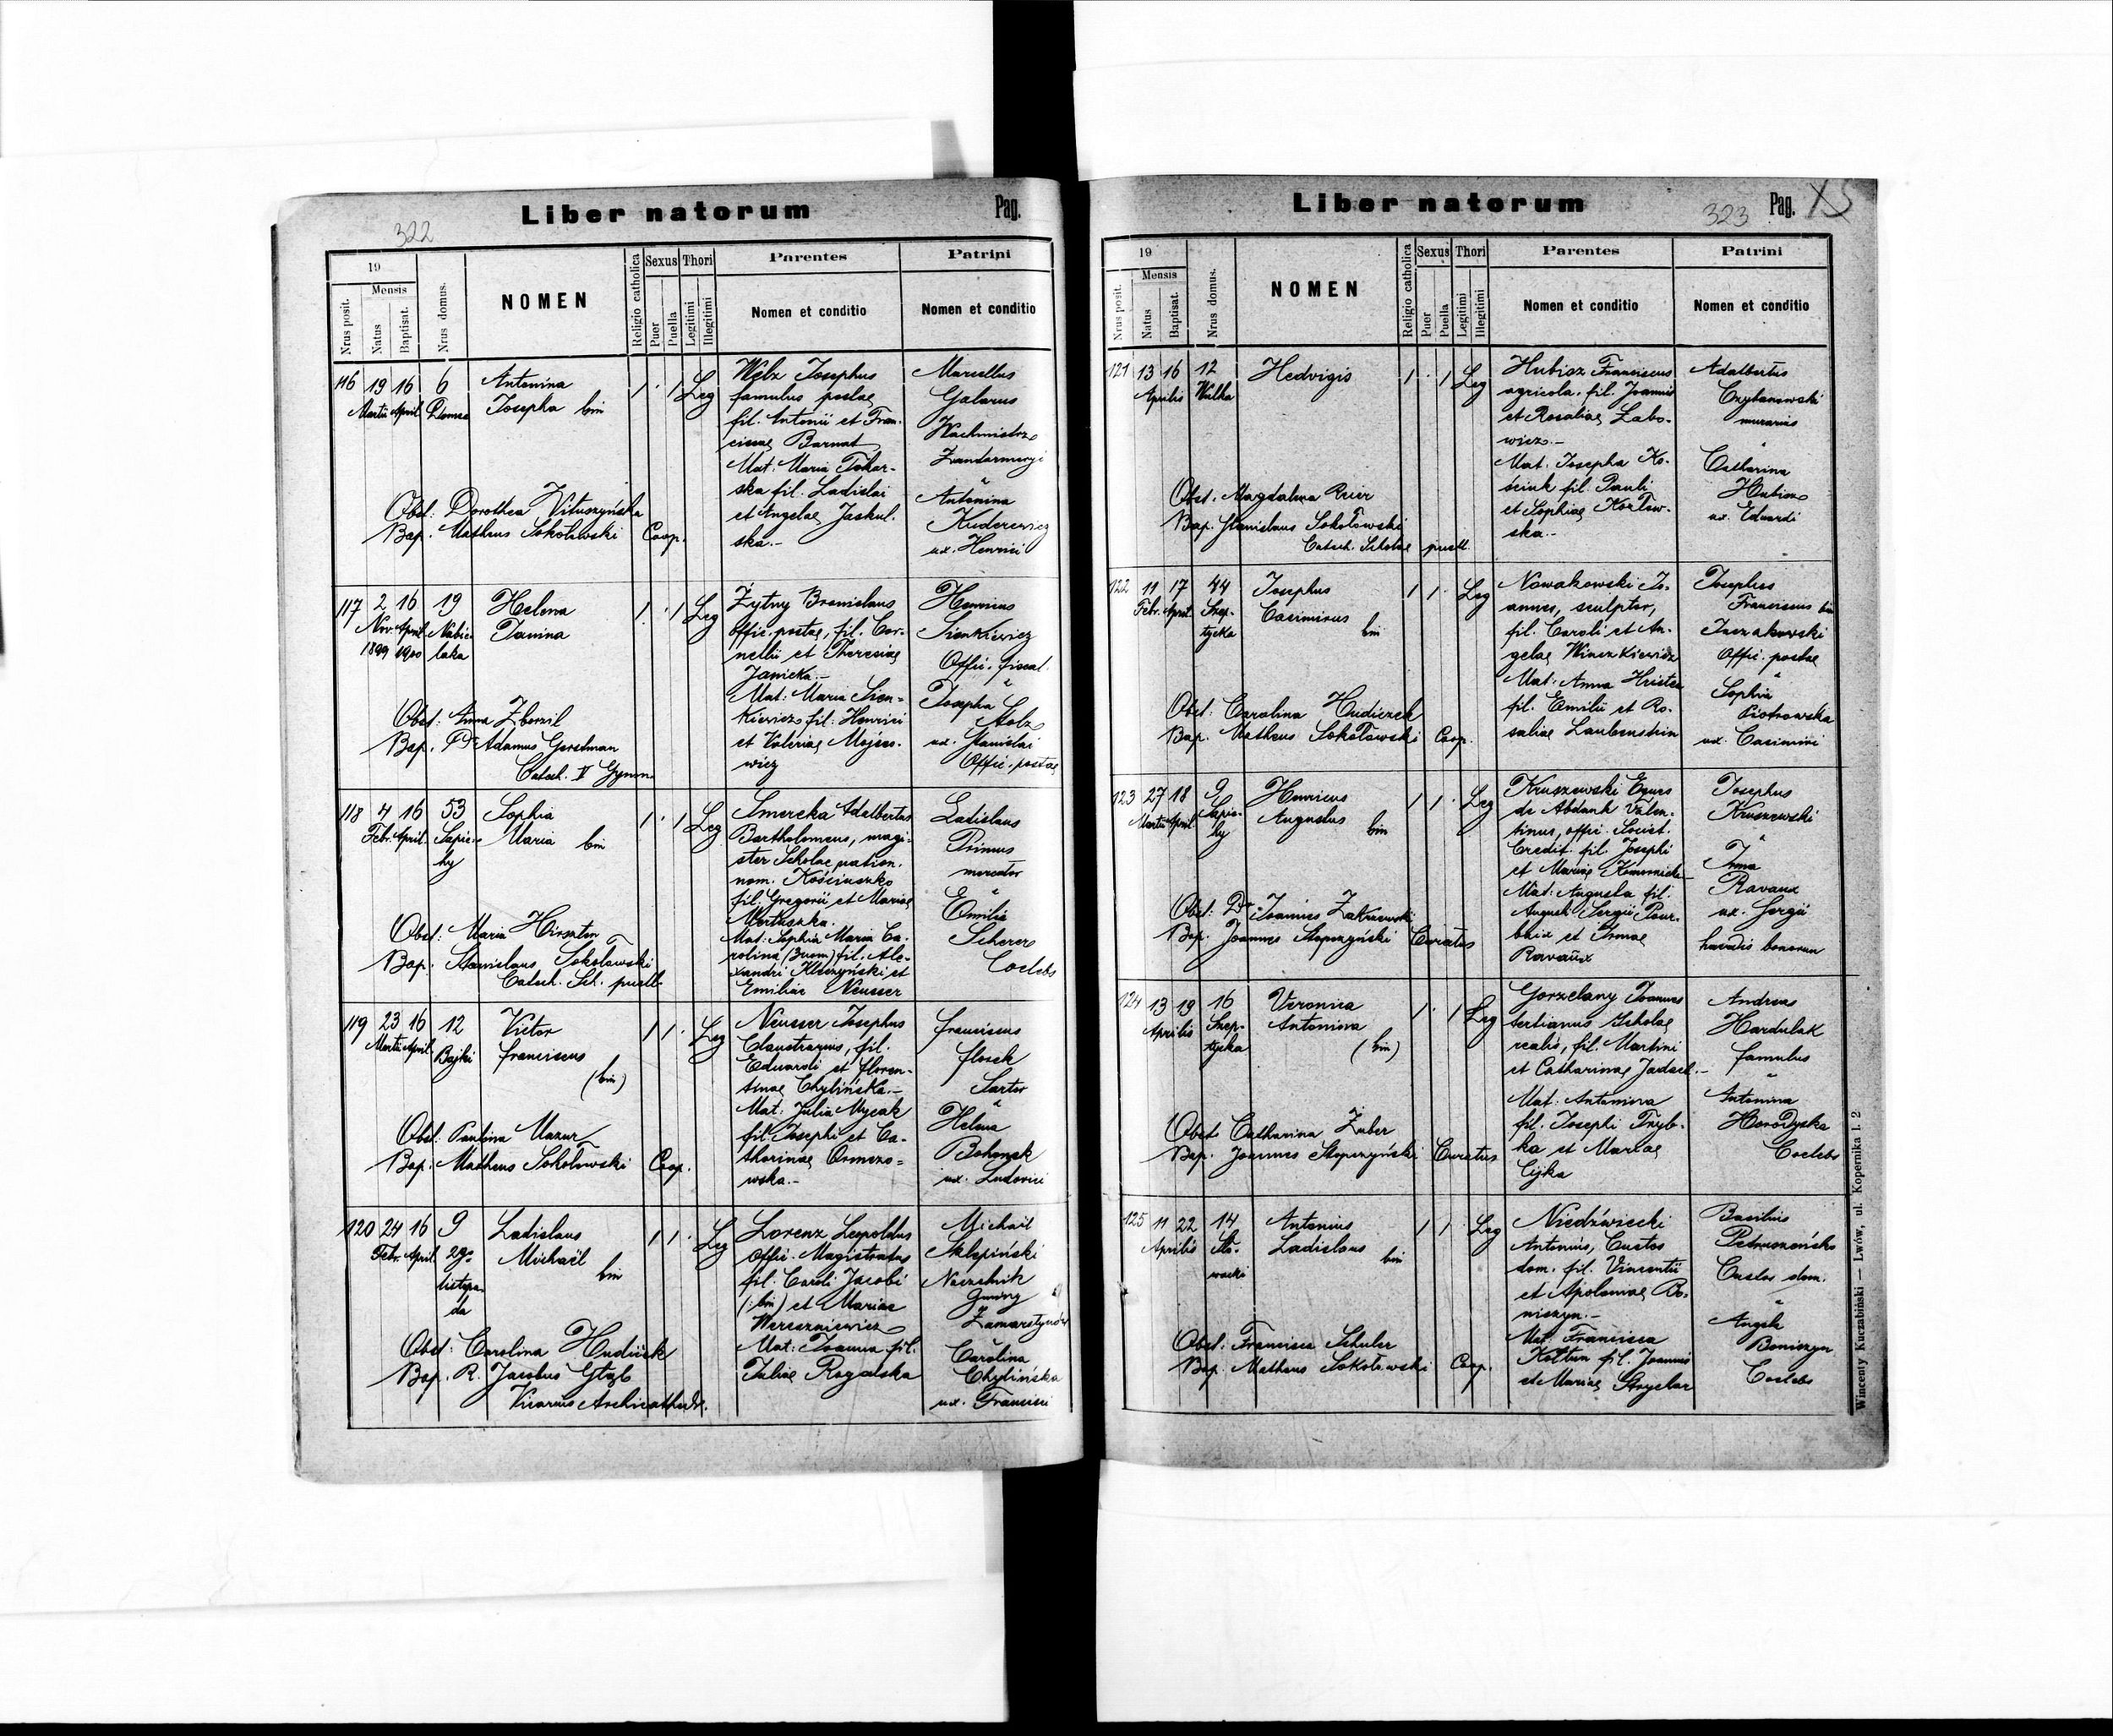 Liber natorum
Pag.
322
19
Mensis
Nrus posit.
Natus
Baptisat.
Nrus domus.
NOMEN
Religio catholica
Sexus
Puer
Puella
Thori
Legitimi
Illegitimi
Parentes
Nomen et conditio
Patrini
Nomen et conditio
116 19 16 6
Martii April
Antonina
Josepha bin
1 · 1 Leg
Welz Josephus
famulus postae
fil. Antonii et Fran-
ciscae Barnat
Mat: Maria Tokar-
ska fil. Ladislai
et Angelae Jaskul-
ska.-
Marcellus
Galarus
Wachmistrz
Żandarmeryi
Antonina
Kuderewicz
ux. Henrici
Obst: Dorothea Vituszyńska
Bap. Matheus Sokołowski Coop.
117 2 16 19
Nov. April Nabie-
1899 1900 laka
Helena
Janina
1 · 1 Leg
Żytny Bronislaus
offic. postae, fil. Cor-
nelii et Theresiae
Janicka.-
Mat: Maria Sien-
kiewicz fil: Henrici
et Valeriae Mojses-
wicz
Henricus
Sienkiewicz
Offic. fiscal.
Josepha
Stolz
ux. Stanislai
Offic. postae
Obst: Anna Zborzil
Bap. Dr Adamus Gerstman
Catech. V Gymn.
118 4 16 53
Febr. April. Sapie-
hy
Sophia
Maria bin
1 · 1 Leg
Smereka Adalbertus
Bartholomeus, magi-
ster Scholae nation.
nom. Kościuszko
fil. Gregorii et Mariae
Mat: Sophia Maria Ca-
rolina (3 nom) fil. Ale-
xandri Kleczyński et
Emiliae Neusser
Ladislaus
Primus
mercator
Emilia
Scherer
Coelebs
Obst: Maria Hirsztin
Bap: Stanislaus Sokołowski
Catech. Sch. puell.
119 23 16 12
Martii April Bajki
Victor
Franciscus
(bin)
1 1 · Leg
Neusser Josephus
Claustrarius, fil.
Eduardi et Floren-
tinae Chylińska.-
Mat: Julia Mycak
fil: Josephi et Ca-
tharinae Ormezo-
wska.-
Franciscus
Florek
Sartor
Helena
Bohonek
ux. Ludovici
Obst: Paulina Mazur
Bap: Matheus Sokołowski Coop.
120 24 16 9
Febr. April 29go
listopa-
da
Ladislaus
Michaël bin
1 1 · Leg
Lorenz Leopoldus
Offic. Magistratus
fil. Caroli Jacobi
(:bin) et Mariae
Wereszniewicz
Mat: Joanna fil.
Juliae Rogalska
Michaël
Sklepiński
Naczelnik
gminy
Zamarstynów
Carolina
Chylińska
ux. Francisci
Obst: Carolina Hudiczek
Bap. R. Jacobus Głąb
Vicarius Archicathedr.
Liber natorum
323
Pag.
XS
19
Mensis
Nrus posit.
Natus
Baptisat.
Nrus domus.
NOMEN
Religio catholica
Sexus
Puer
Puella
Thori
Legitimi
Illegitimi
Parentes
Nomen et conditio
Patrini
Nomen et conditio
121 13 16 12
Aprilis Wulka
Hedvigis
1 · 1 Leg
Hubisz Franciscus
agricola. fil. Joannis
et Rosaliae Zabo-
wicz.-
Mat. Josepha Ko-
ściuk fil. Pauli
et Sophiae Kozłow-
ska.-
Adalbertus
Czyżanowski
murarius
Catharina
ux. Eduardi
Obst. Magdalena Reier
Bap. Stanislaus Sokołowski
Catech. Scholae puell.
122 11 17 44
Febr. April Szep-
tycka
Josephus
Casimirus
bin
1 1 · Leg
Nowakowski Jo-
annes, sculptor,
fil. Caroli et An-
gelae Winczkiewicz
Mat: Anna Hristea
fil. Emilii et Ro-
saliae Laubenstein
Josephus
Franciscus bin
Juzakowski
Offic. postae
Sophia
Piotrowska
ux. Casimiri
Obst: Carolina Hudiczek
Bap. Matheus Sokołowski Coop.
123 27 18 9
Martii April Sapie-
hy
Henricus
Augustus bin
1 1 · Leg
Kruszewski Eques
de Abdank Valen-
tinus, offic. Societ.
Credit. fil. Josephi
et Mariae
Mat: Augusta fil.
Augusti Sergii Pour-
baix et Irmae
Ravaux
Josephus
Kruszewski
Irma
Ravaux
ux. Sergii
haeredis bonorum
Obst: Dr Joannes Zakrzewski
Bap. Joannes Stopczyński Curatus
124 13 19 16
Aprilis Szep-
tycka
Veronica
Antonina
(bin)
1 · 1 Leg
Gorzelany Joannes
tertianus Scholae
realis, fil. Martini
et Catharinae Jadach.-
Mat: Antonina
fil. Josephi Tryb-
ka et Mariae
Cijka
Andreas
Hardulak
famulus
Antonina
Horodyska
Coelebs
Obst: Catharina Zuber
Bap. Joannes Stopczyński Curatus
125 11 22 14
Aprilis Sło-
wacki
Antonius
Ladislaus bin
1 1 · Leg
Niedźwiecki
Antonius, Custos
dom. fil. Vincentii
et Apoloniae Bo-
niszyn.-
Mat: Francisca
Kołtun fil. Joannis
et Mariae Strychar
Basilius
Custos dom.
Angela
Boniszyn
Coelebs
Obst: Francisca Schuler
Bap. Matheus Sokołowski Coop.
Wincenty Kuczabiński — Lwów, ul. Kopernika l. 2